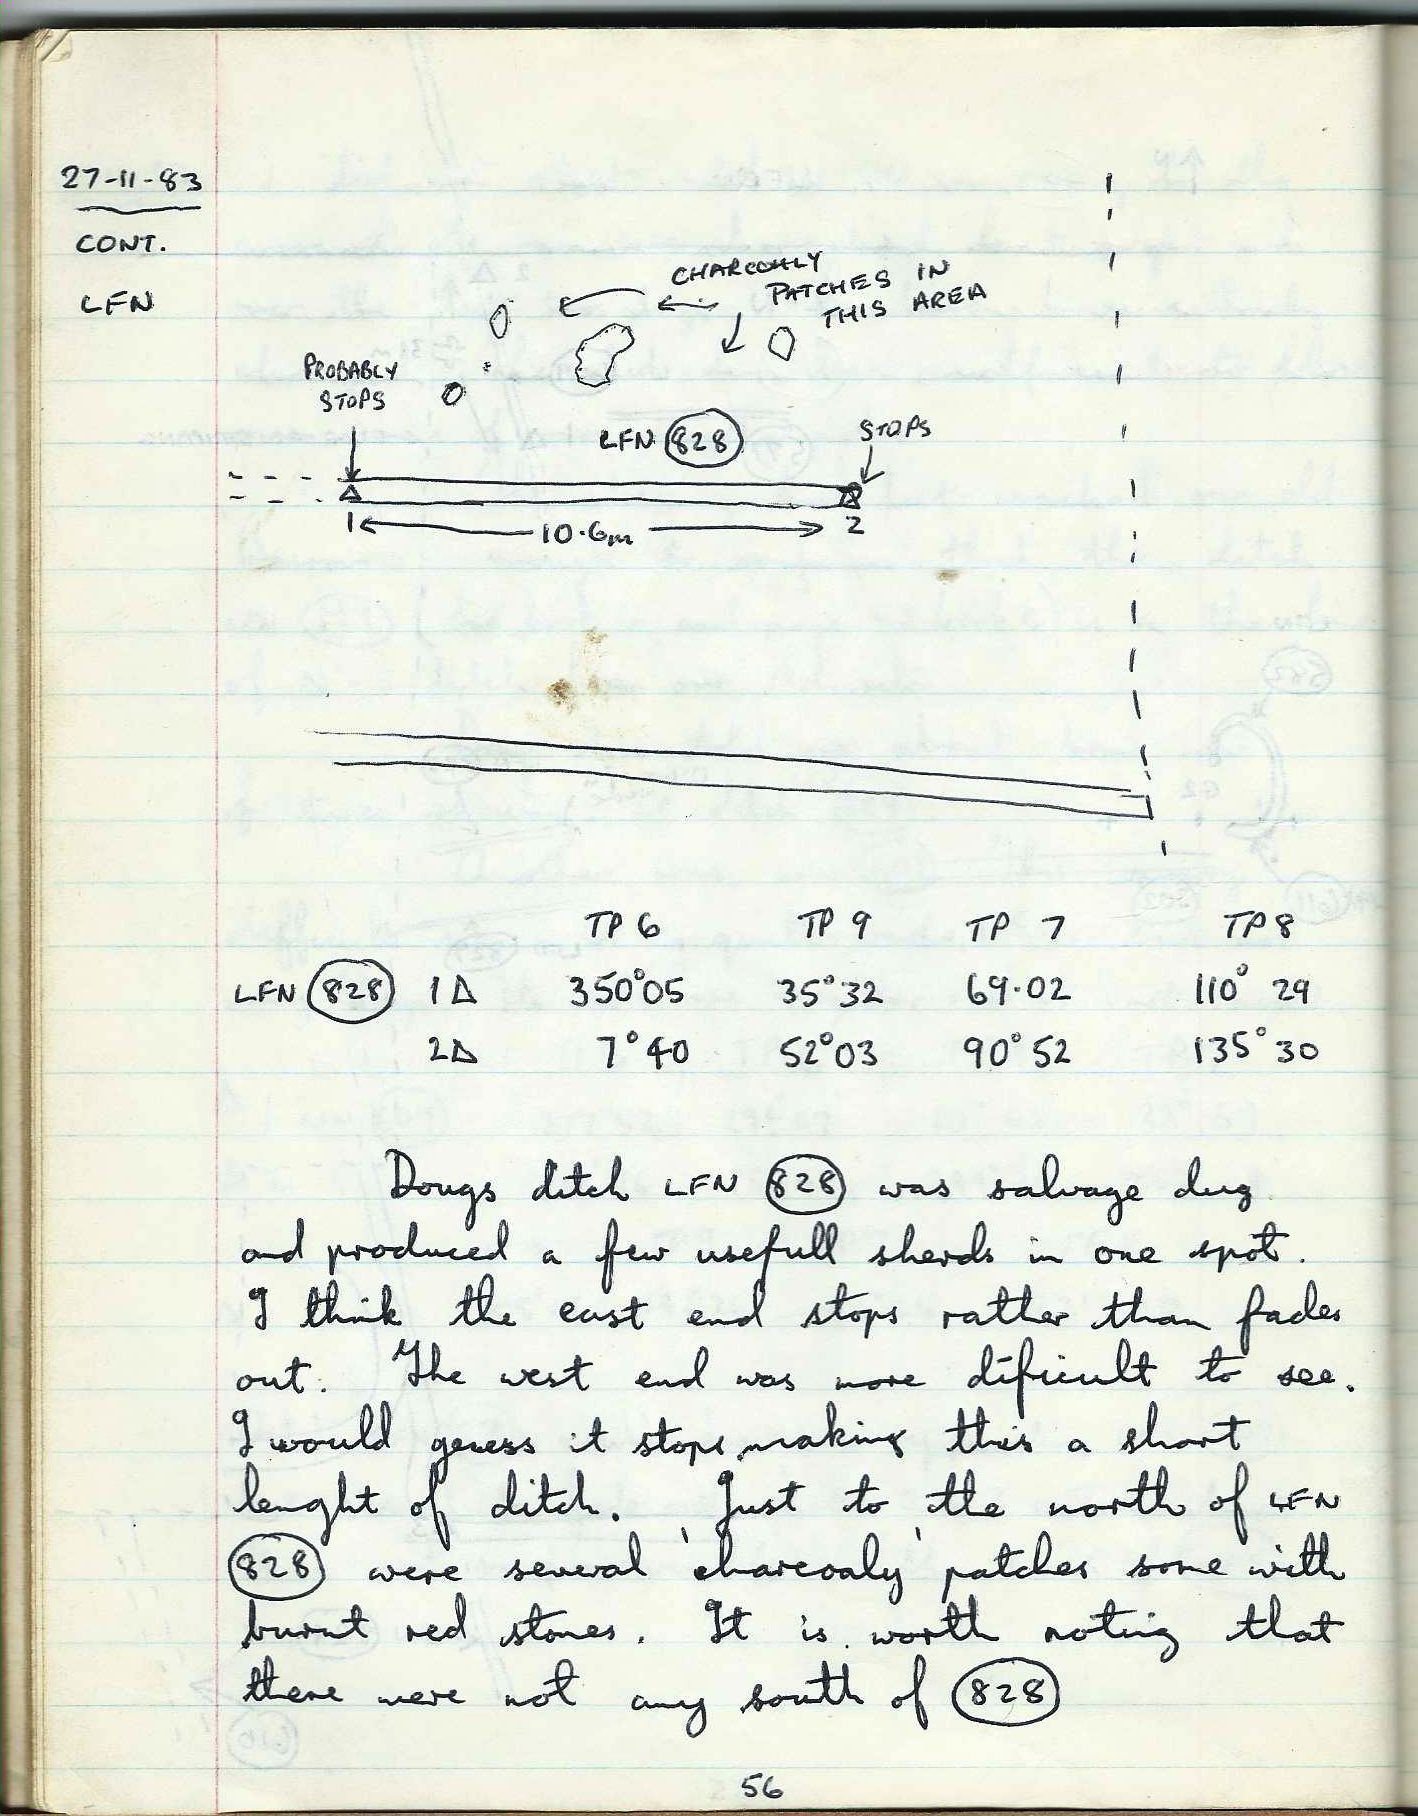 27-11-83
CONT.
LFN
CHARCOALY
PATCHES IN
THIS AREA
PROBABLY
STOPS
LFN 828
STOPS
1
10.6m
2
TP 6 TP 9 TP 7 TP 8
LFN 828 1Δ 350°05 35°32 69.02 110° 29
2Δ 7°40 52°03 90°52 135°30
Dougs ditch LFN 828 was salvage dug
and produced a few usefull sherds in one spot.
I think the east end stops rather than fades
out. The west end was more dificult to see.
I would guess it stops, making this a short
lenght of ditch. Just to the north of LFN
828 were several 'charcoaly' patches some with
burnt red stones. It is worth noting that
there were not any south of 828
56